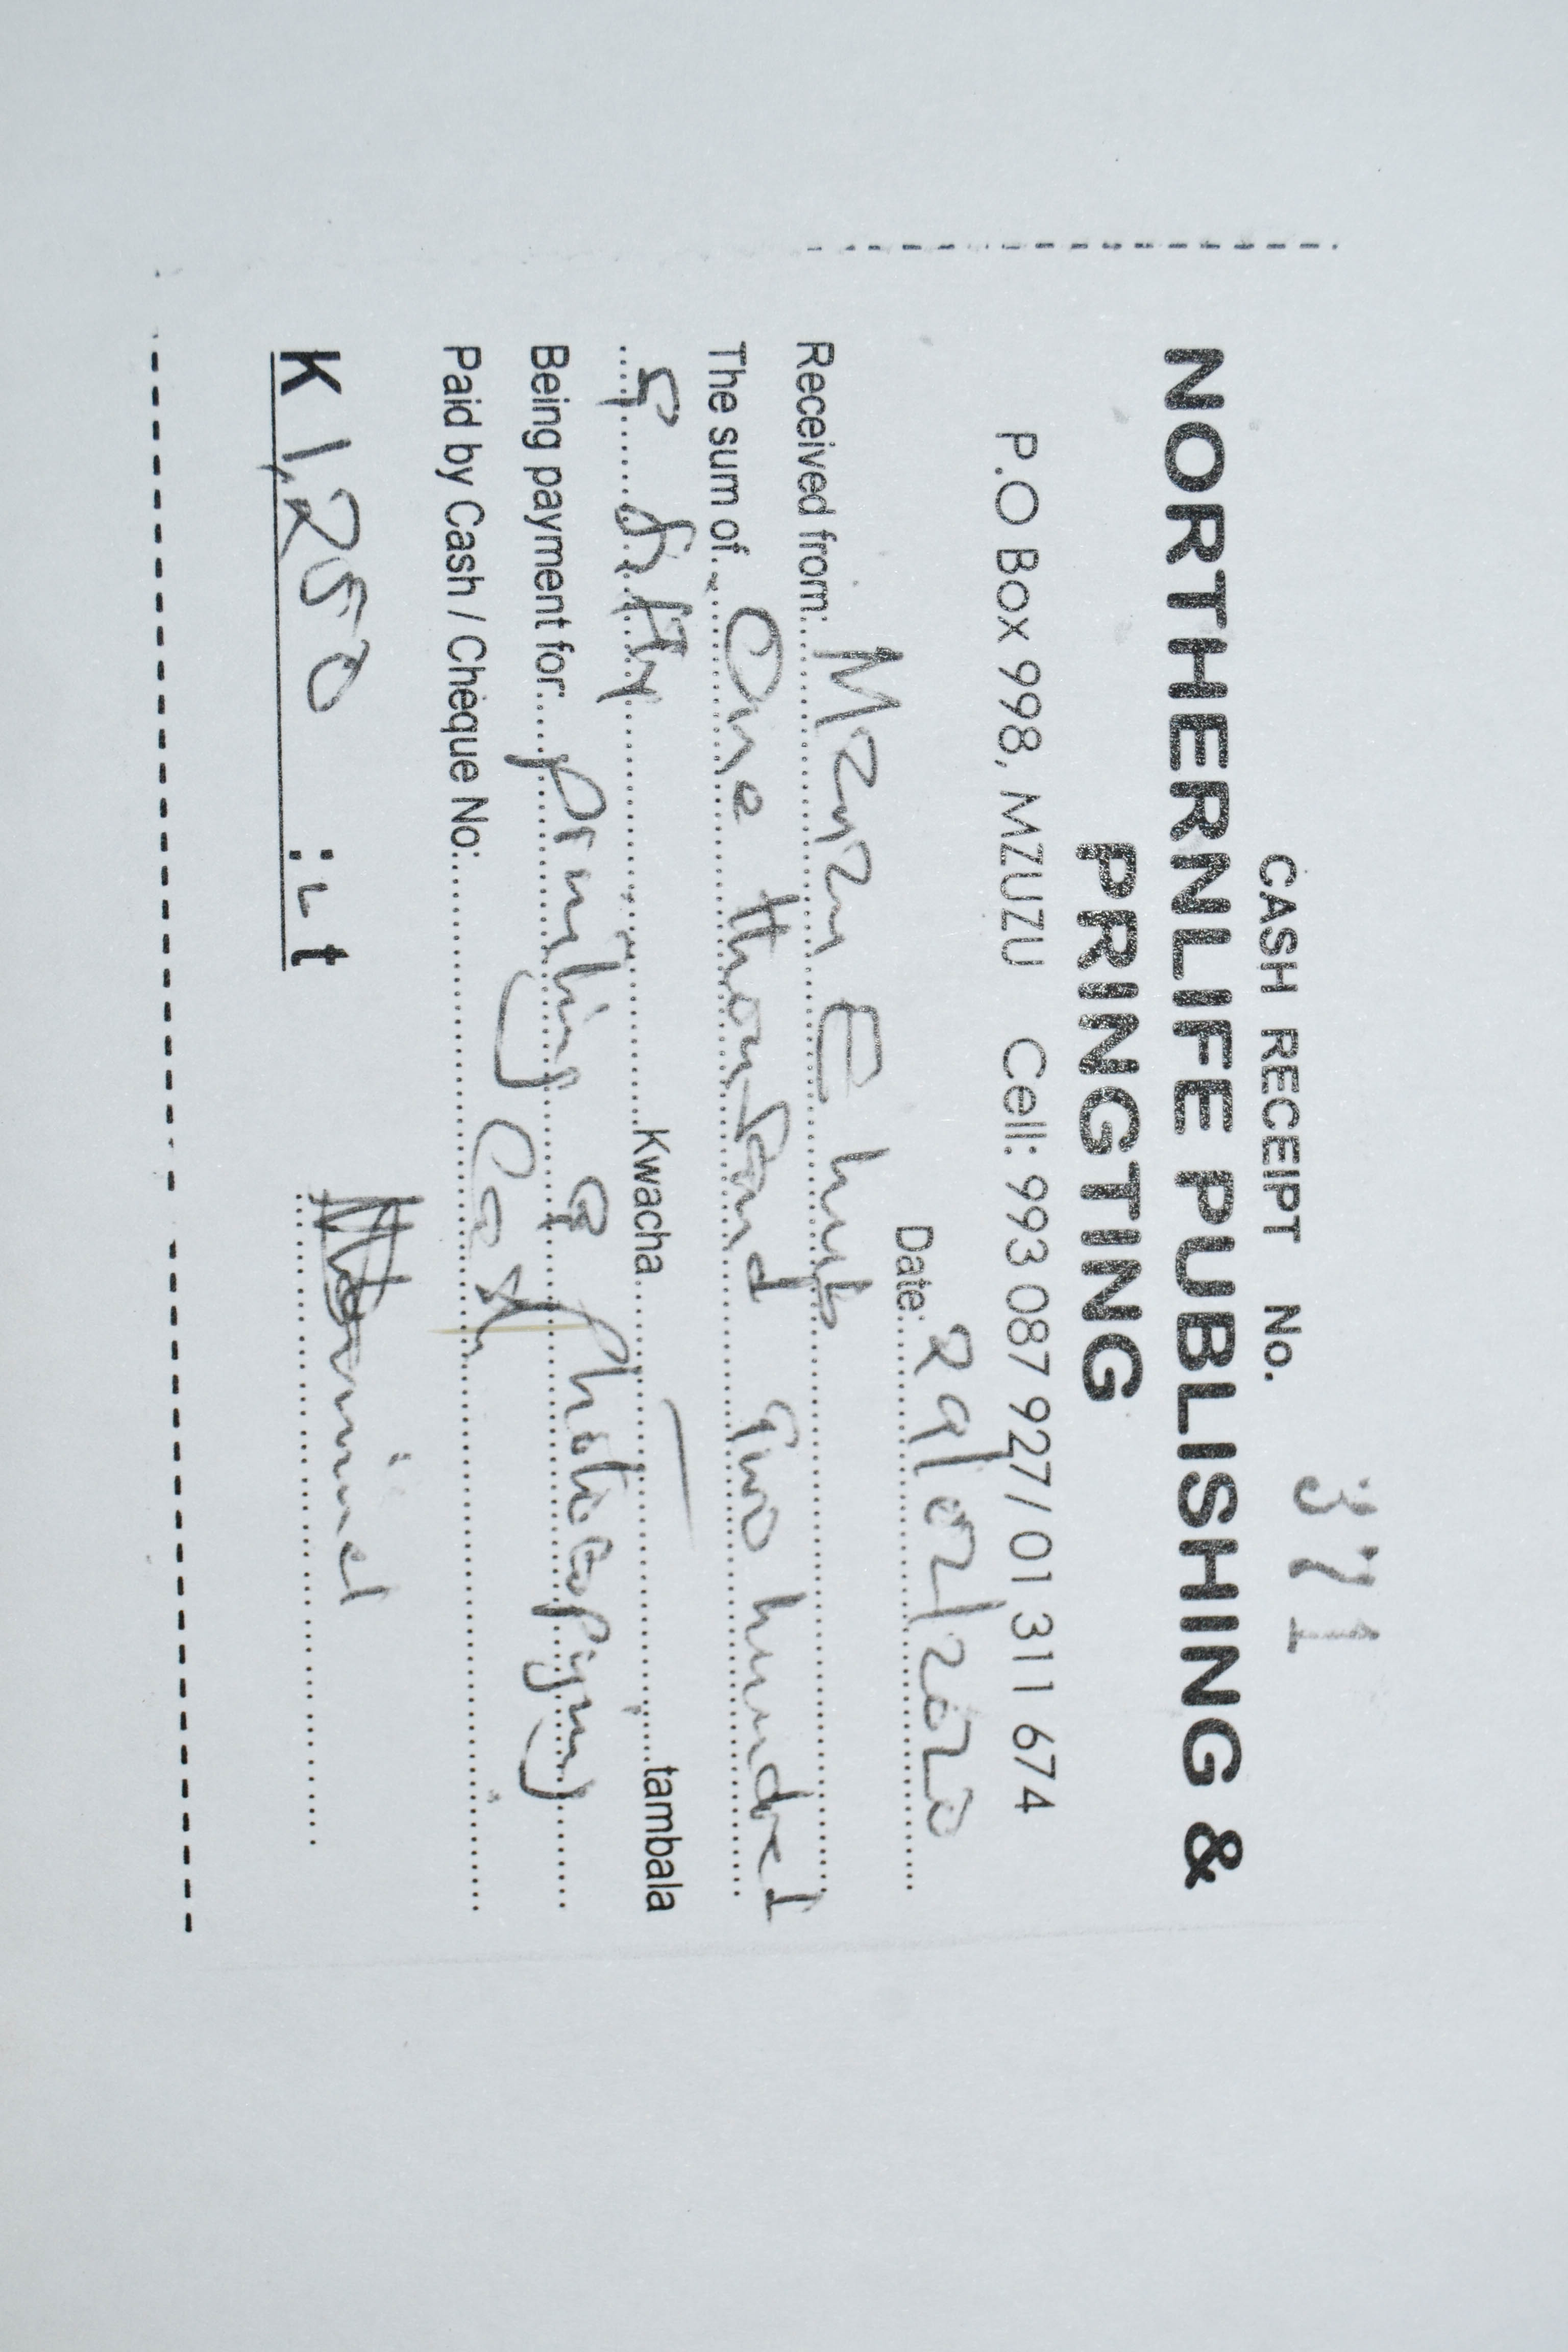 371
CASH RECEIPT No.
NORTHERNLIFE PUBLISHING &
PRINGTING
P.O Box 998, MZUZU Cell: 993 087 927/ 01 311 674
Date: 29/02/2020
Received from: Mzuzu E hub
The sum of One thousand two hundred
& fifty Kwacha — tambala
Being payment for: Printing & Photocopying
Paid by Cash / Cheque No: Cash
K 1,250 : t